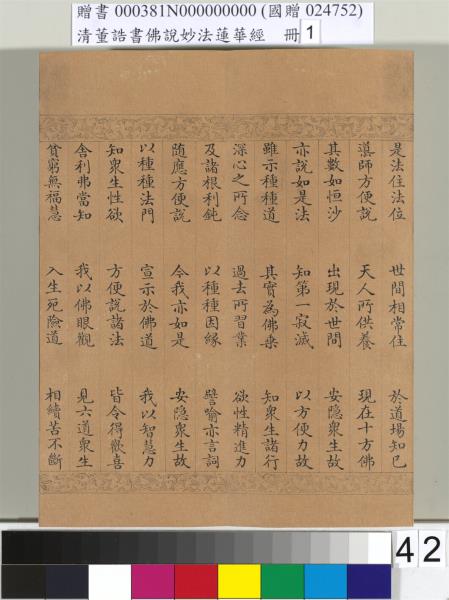 贈書 000381N000000000 (國贈 024752)
清董誥書佛說妙法蓮華經 冊 1
是法住法位 世間相常住 於道場知已
導師方便說 天人所供養 現在十方佛
其數如恒沙 出現於世間 安隱衆生故
亦說如是法 知第一寂滅 以方便力故
雖示種種道 其實為佛乘 知衆生諸行
深心之所念 過去所習業 欲性精進力
及諸根利鈍 以種種因緣 譬喻亦言詞
隨應方便說 今我亦如是 安隱衆生故
以種種法門 宣示於佛道 我以智慧力
知衆生性欲 方便說諸法 皆令得歡喜
舍利弗當知 我以佛眼觀 見六道衆生
貧窮無福慧 入生死險道 相續苦不斷
42